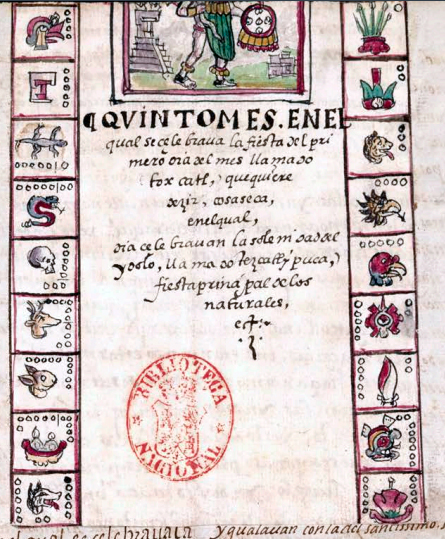 ¶QVINTO MES. EN EL
qual se celebraua la fiesta del pri
mero dia del mes llamado
toxcatl, que quiere
dezir, cosa seca,
en el qual,
dia celebrauan la solemnidad del
ydolo, llamado tezcatlypuca,
fiesta principal de los
naturales,
etc.
BIBLIOTECA
NACIONAL
qual se celebraua